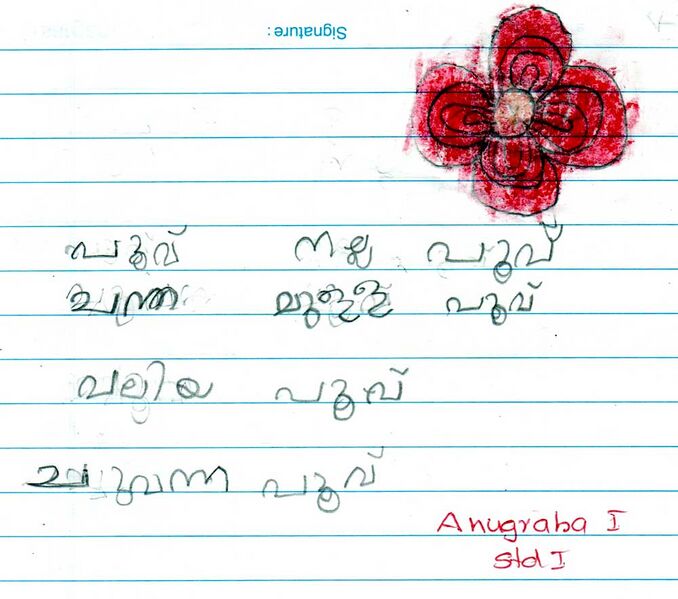 Signature :
പൂവ് നല്ല പൂവ്
ചന്ത മുള്ള പൂവ്
വലിയ പൂവ്
ചുവന്ന പൂവ്
Anugraba I
Std I